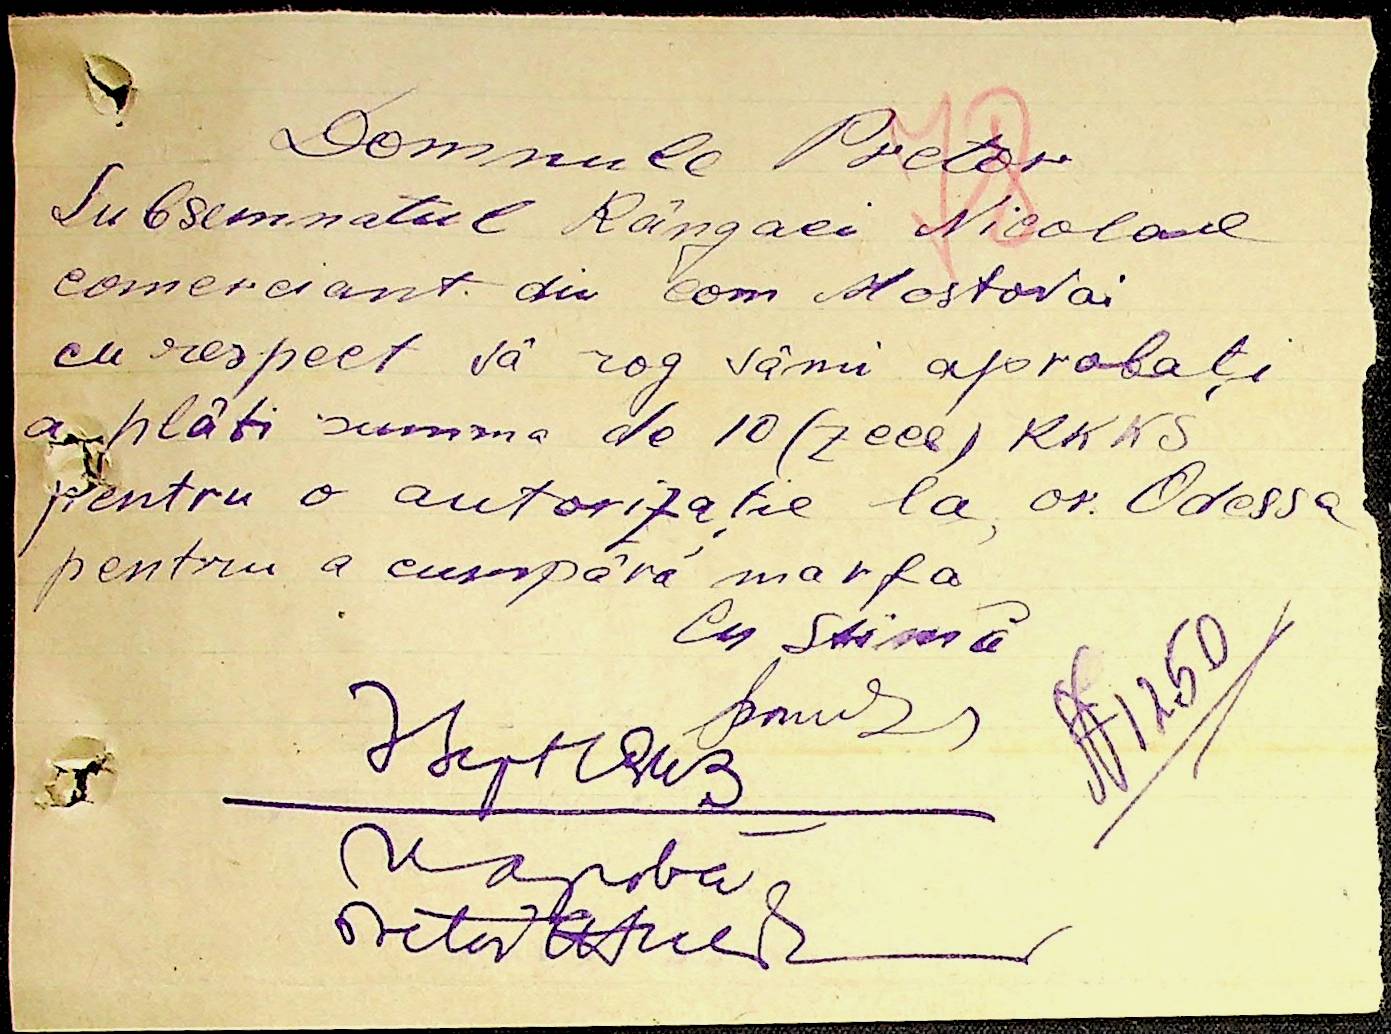 78
Domnule Pretor
Subsemnatul Rângaci Nicolae
comerciant din com Mostovai
cu respect vâ rog sâmi aprobați
a plâti summa de 10 (zece) RKKS
pentru o autorizație la or. Odessa
pentru a cumpâra marfa
Cu Stimâ
Sept
№ 1250
Se aprobă
Pretor